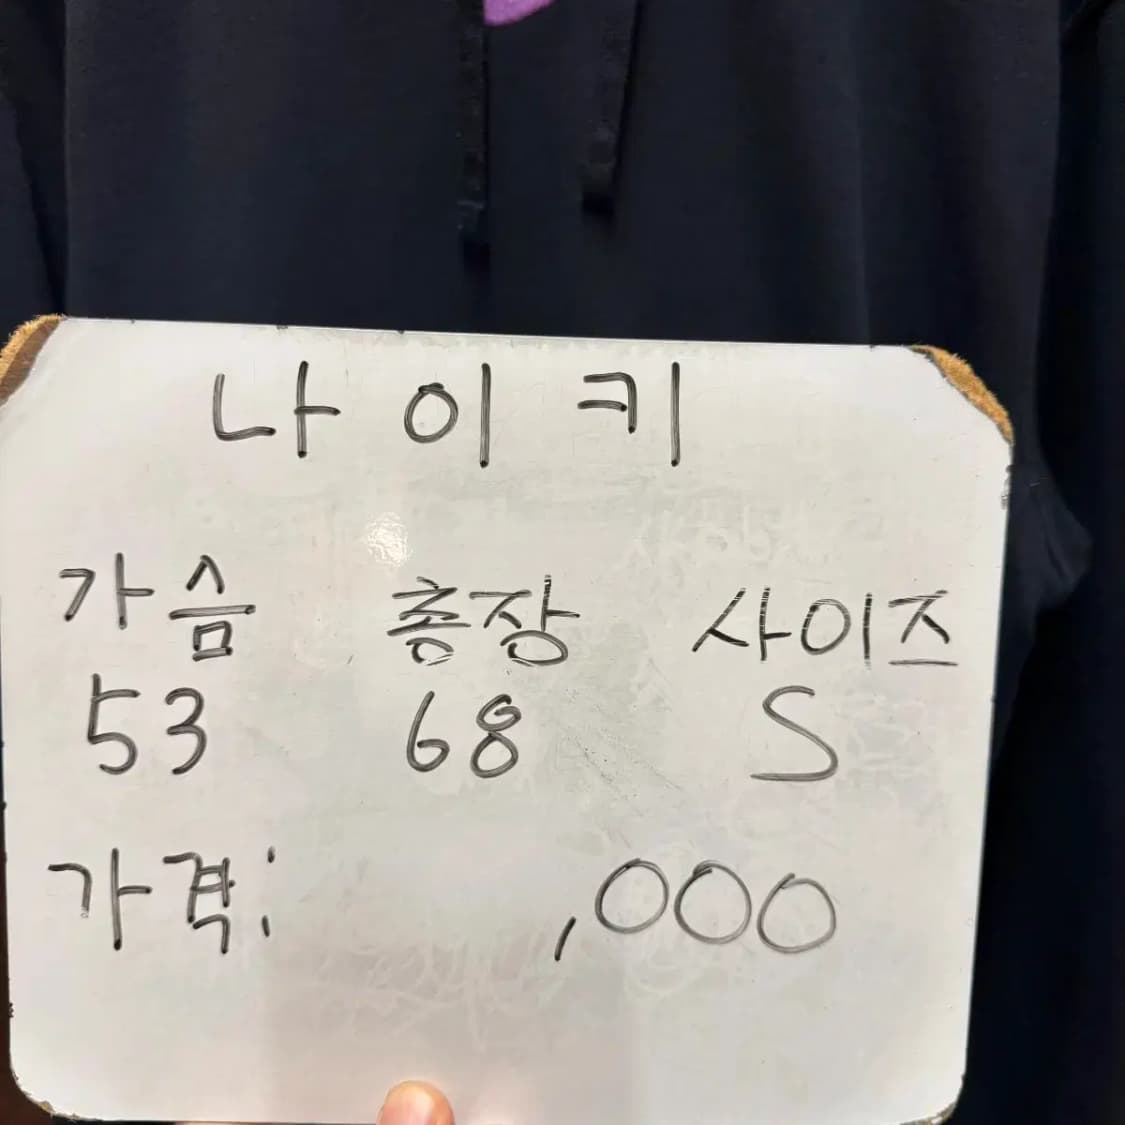 나이키
가슴 총장 사이즈
53 68 S
가격: ,000